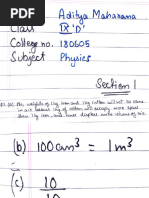 Aditya Maharana
Class IX 'D'
College no. 180605
Subject Physics
Section I
of 1kg iron and 1kg cotton will not be same
in air because 1kg of cotton will occupy more space
than 1kg iron and hence displace more volume of air.
(b) 100cm³ = 1m³
(c) 10
10